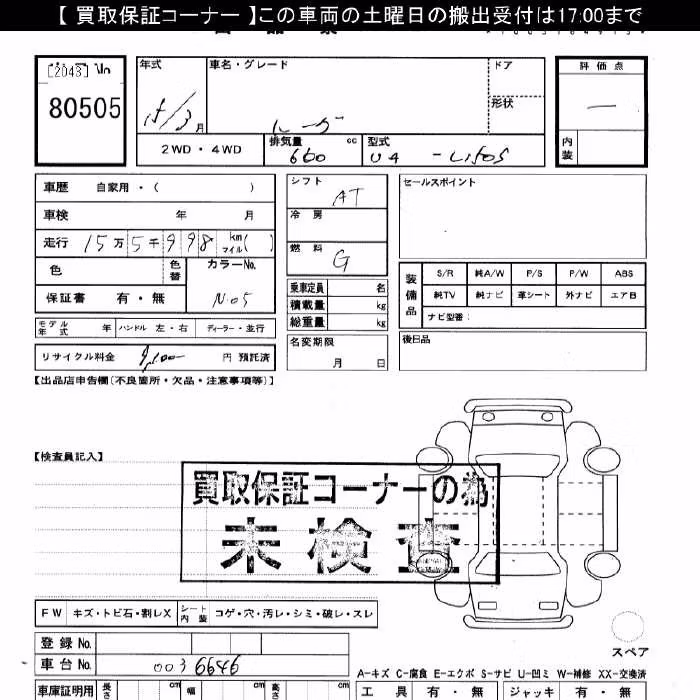 【 買取保証コーナー 】この車両の土曜日の搬出受付は17:00まで
[2043] No
80505
年式
車名・グレード
ドア
形状
評価点
15/3 月
2WD・4WD
排気量 cc
660
型式
内装
車歴 自家用・( )
車検 年 月
走行 15万 5千 998 km マイル( )
色
色替
カラーNo.
N-05
保証書 有・無
モデル年式 年 ハンドル 左・右 ディーラー・並行
リサイクル料金 円 預託済
シフト
AT
冷房
燃料
G
乗車定員 名
積載量 kg
総重量 kg
名変期限
月 日
セールスポイント
装備品
S/R 純A/W P/S P/W ABS
純TV 純ナビ 革シート 外ナビ エアB
ナビ型番:
後日品
【出品店申告欄(不良箇所・欠品・注意事項等)】
【検査員記入】
買取保証コーナーの為
未検査
FW キズ・トビ石・割レX シート内装 コゲ・穴・汚レ・シミ・破レ・スレ
登録No.
車台No. 0036646
車庫証明用 長さ cm 幅 cm 高さ cm
スペア
A-キズ C-腐食 E-エクボ S-サビ U-凹ミ W-補修 XX-交換済
工具 有・無 ジャッキ 有・無